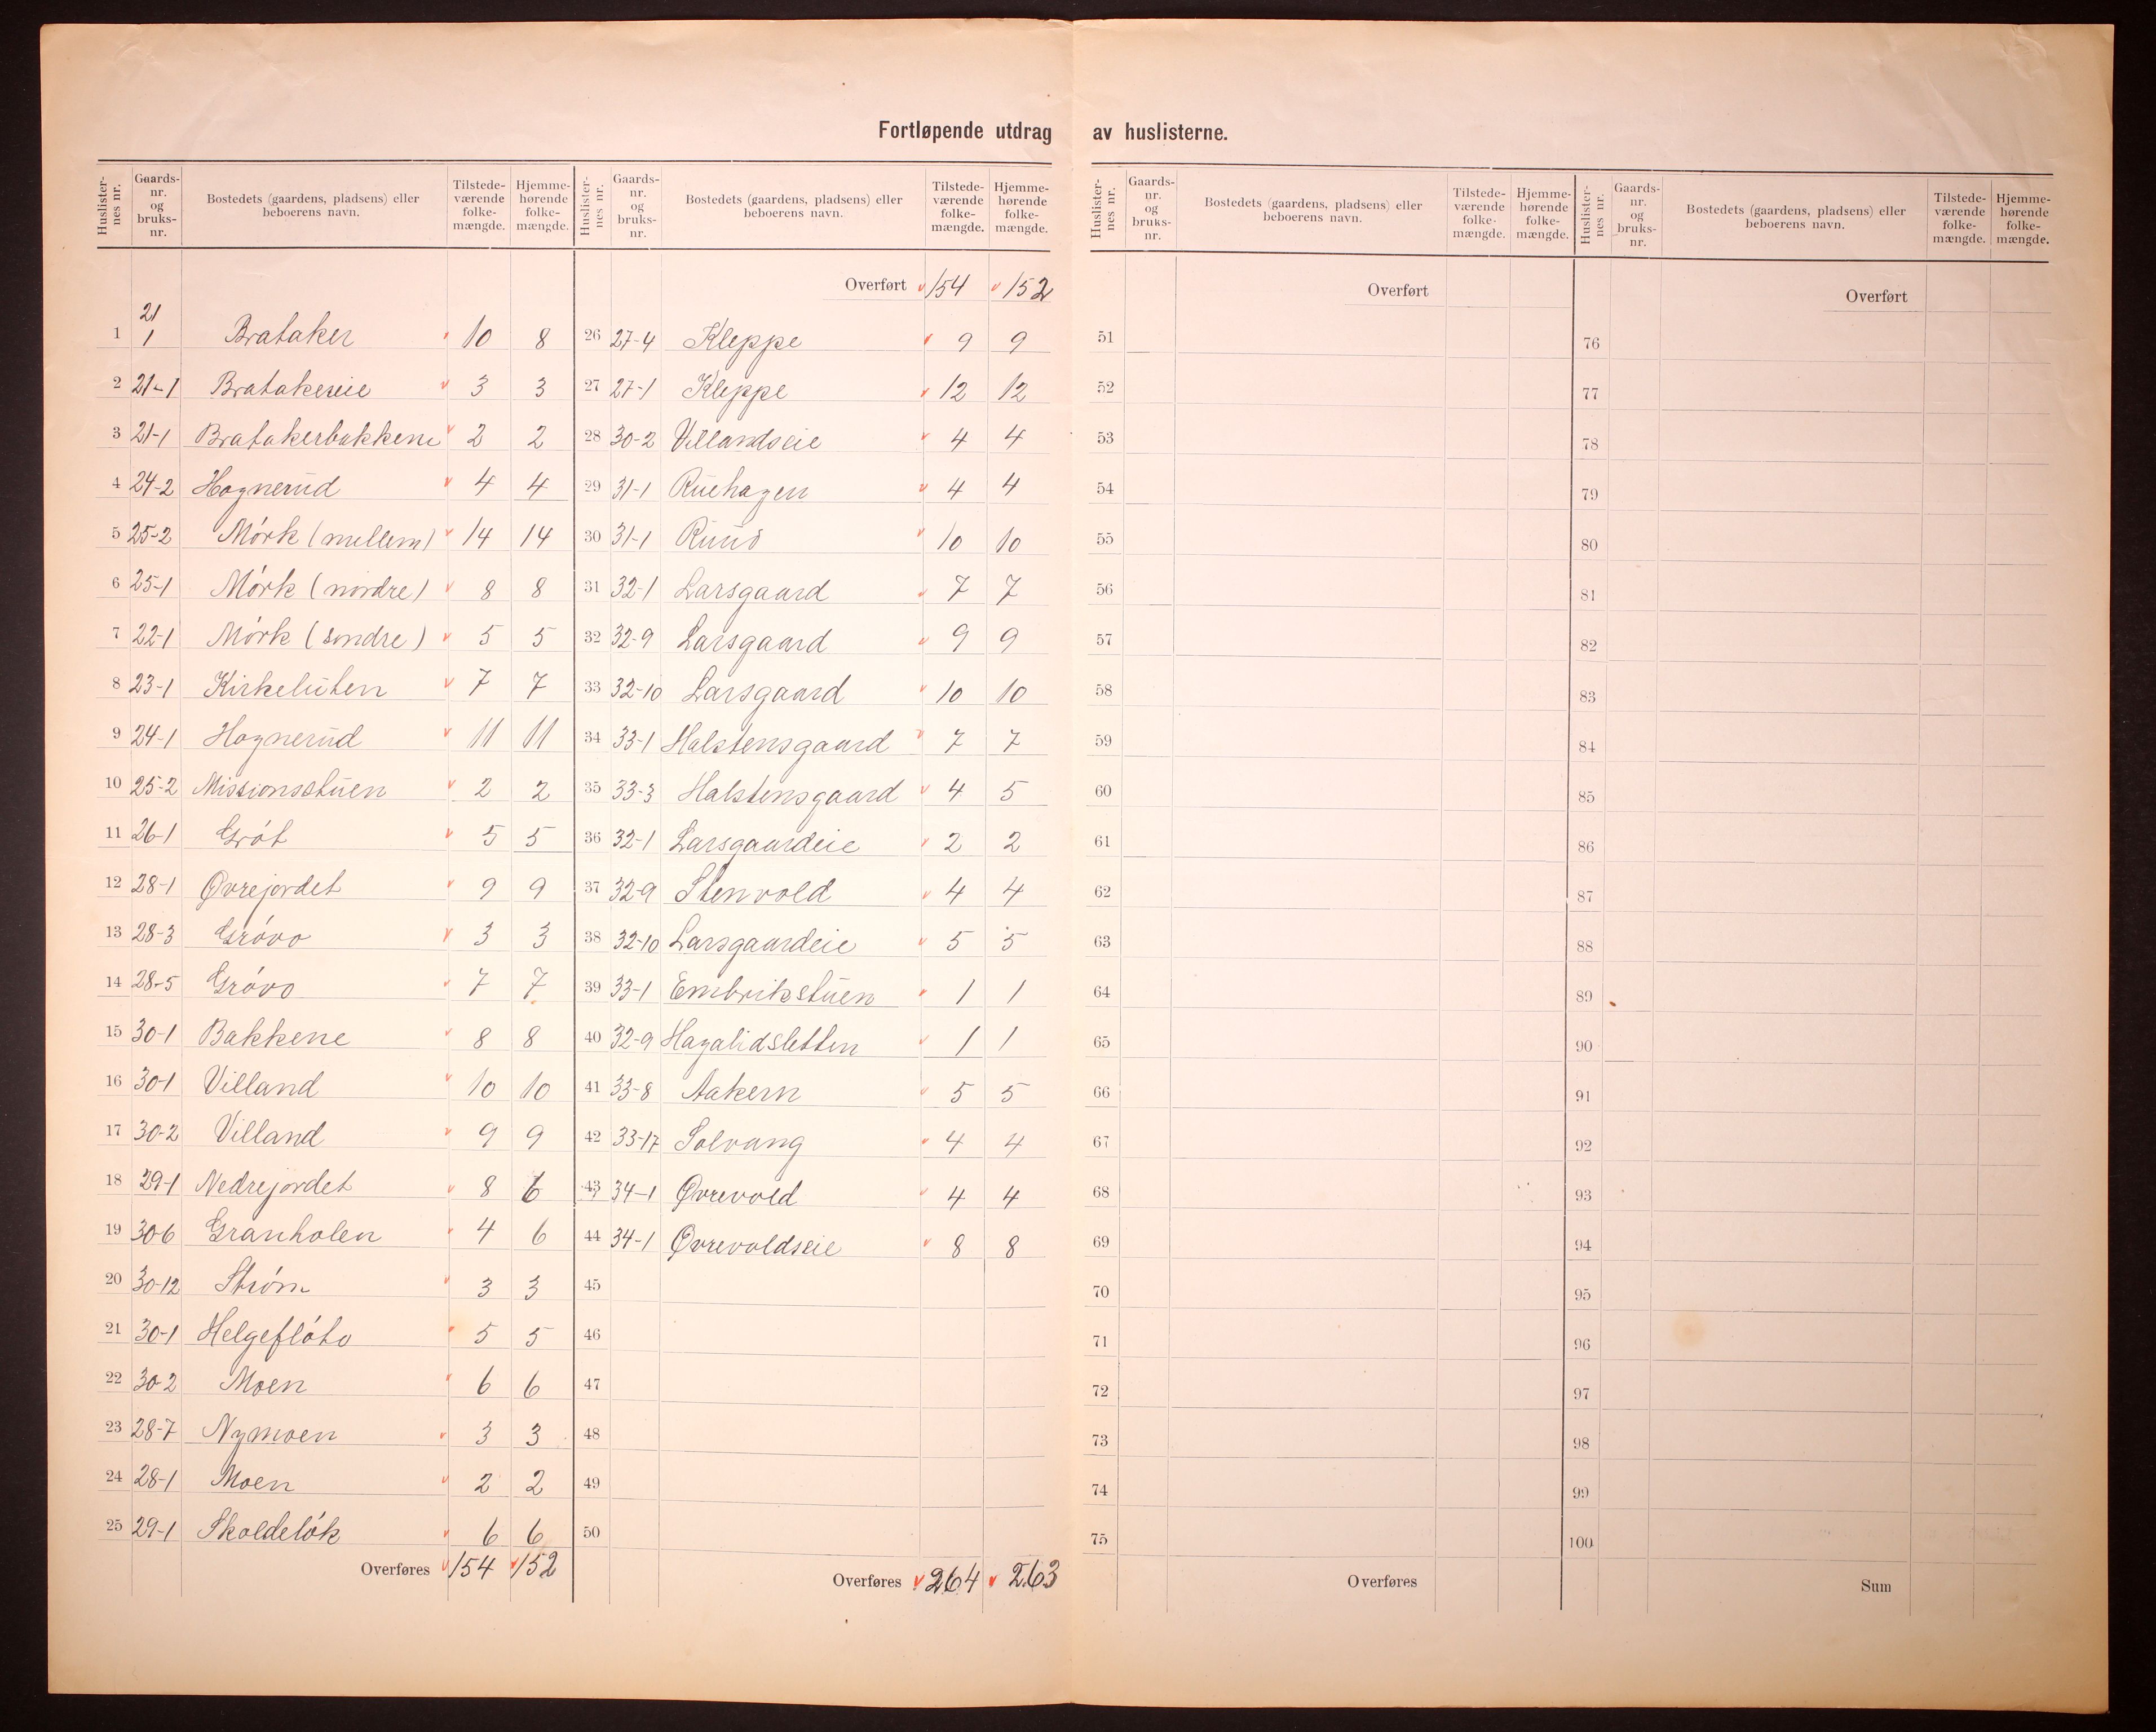 Fortløpende utdrag av huslisterne.
Huslister-nes nr. Gaards-nr. og bruks-nr. Bostedets (gaardens, pladsens) eller beboerens navn. Tilstede-værende folke-mængde. Hjemme-hørende folke-mængde.
1 21 1 Brataker 10 8
2 21-1 Bratakereie 3 3
3 21-1 Bratakerbakkene 2 2
4 24-2 Hognerud 4 4
5 25-2 Mórk (mellem) 14 14
6 25-1 Mórk (nordre) 8 8
7 22-1 Mórk (söndre) 5 5
8 23-1 Kirkeluten 7 7
9 24-1 Hognerud 11 11
10 25-2 Missionsstuen 2 2
11 26-1 Gröt 5 5
12 28-1 Øvrejordet 9 9
13 28-3 Grövo 3 3
14 28-5 Grövo 7 7
15 30-1 Bakkene 8 8
16 30-1 Villand 10 10
17 30-2 Villand 9 9
18 29-1 Nedrejordet 8 6
19 30-6 Granholen 4 6
20 30-12 Ström 3 3
21 30-1 Helgeflóto 5 5
22 30-2 Moen 6 6
23 28-7 Nymoen 3 3
24 28-1 Moen 2 2
25 29-1 Skoldelók 6 6
Overføres 154 152
Huslister-nes nr. Gaards-nr. og bruks-nr. Bostedets (gaardens, pladsens) eller beboerens navn. Tilstede-værende folke-mængde. Hjemme-hørende folke-mængde.
Overført 154 152
26 27-4 Kleppe 9 9
27 27-1 Kleppe 12 12
28 30-2 Villandseie 4 4
29 31-1 Ruehagen 4 4
30 31-1 Ruud 10 10
31 32-1 Larsgaard 7 7
32 32-9 Larsgaard 9 9
33 32-10 Larsgaard 10 10
34 33-1 Halstensgaard 7 7
35 33-3 Halstensgaard 4 5
36 32-1 Larsgaardeie 2 2
37 32-9 Stenvold 4 4
38 32-10 Larsgaardeie 5 5
39 33-1 Embrikstuen 1 1
40 32-9 Hagalidsletten 1 1
41 33-8 Aakern 5 5
42 33-17 Solvang 4 4
43 34-1 Øvrevold 4 4
44 34-1 Øvrevoldseie 8 8
45
46
47
48
49
50
Overføres 264 263
Huslister-nes nr. Gaards-nr. og bruks-nr. Bostedets (gaardens, pladsens) eller beboerens navn. Tilstede-værende folke-mængde. Hjemme-hørende folke-mængde.
Overført
51
52
53
54
55
56
57
58
59
60
61
62
63
64
65
66
67
68
69
70
71
72
73
74
75
Overføres
Huslister-nes nr. Gaards-nr. og bruks-nr. Bostedets (gaardens, pladsens) eller beboerens navn. Tilstede-værende folke-mængde. Hjemme-hørende folke-mængde.
Overført
76
77
78
79
80
81
82
83
84
85
86
87
88
89
90
91
92
93
94
95
96
97
98
99
100
Sum